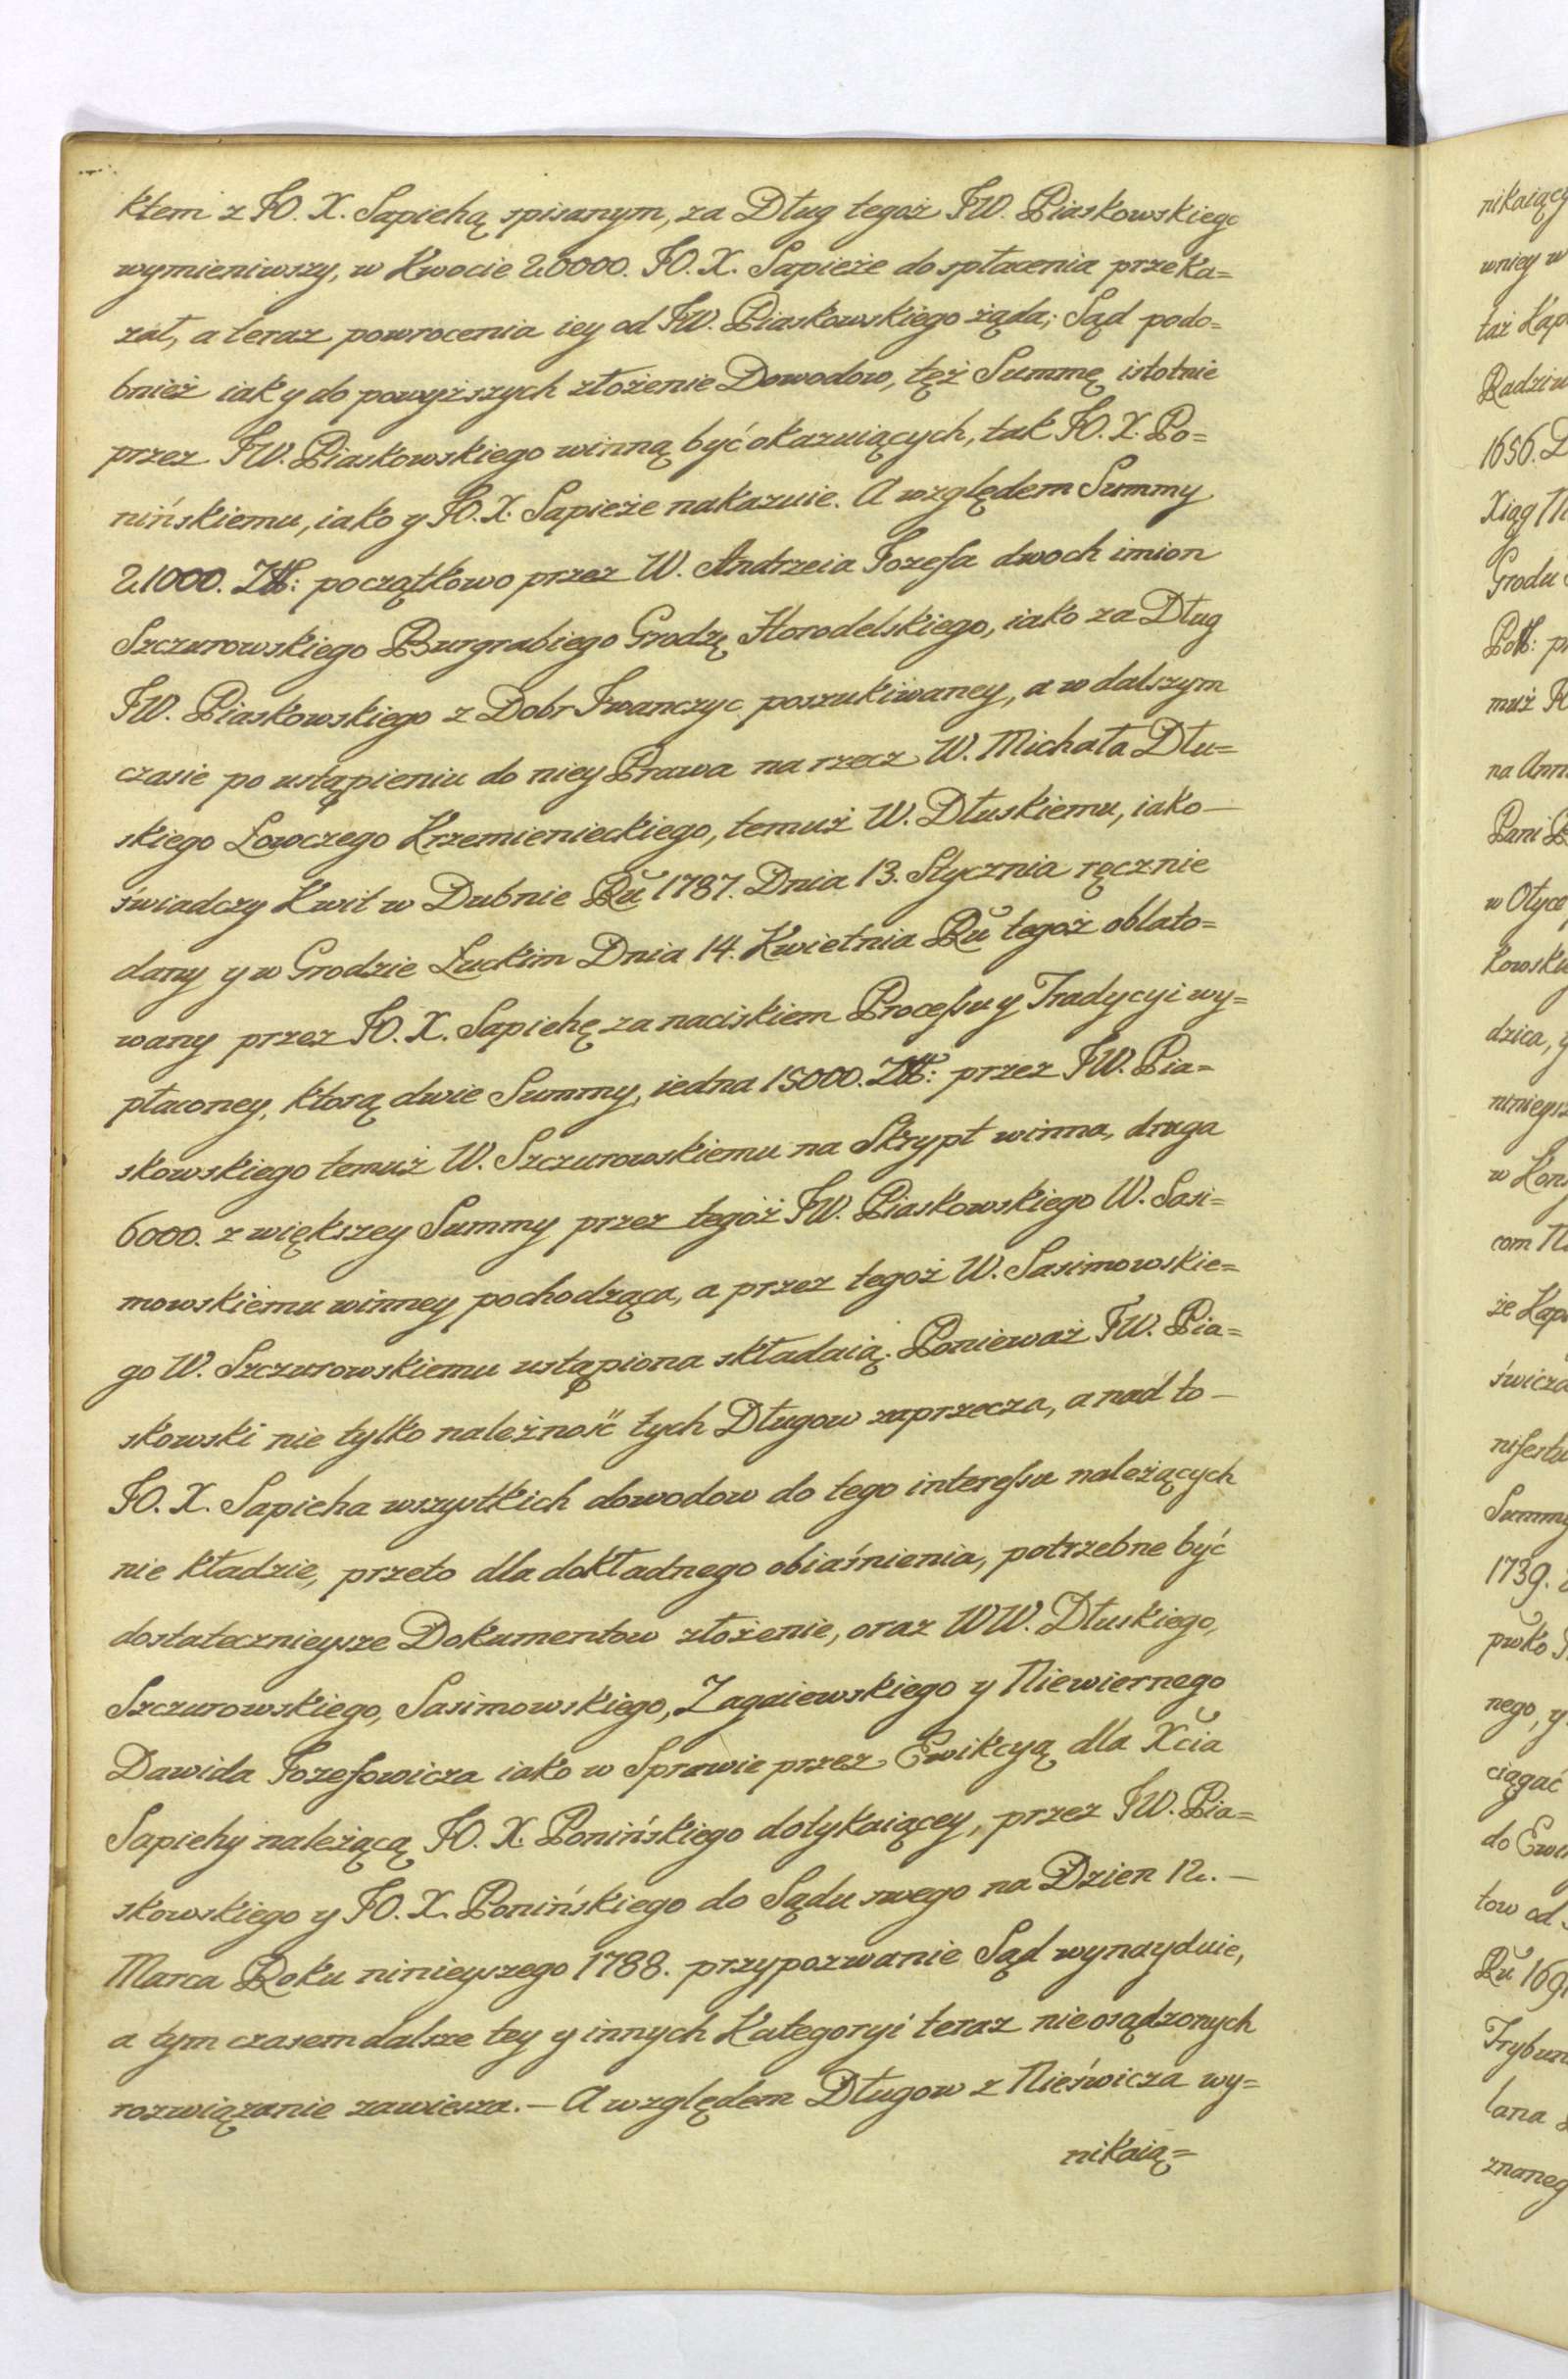 ktem z JO. X. Sapiehą spisanym, za Dług tegoż JW. Piaskowskiego
wymieniwszy, w Kwocie 20000. JO. X. Sapieże do spłacenia przeka=
zał, a teraz powrocenia iey od JW. Piaskowskiego żąda; Sąd podo=
bnież iak y do powyższych złożenie Dowodow, tęż Summę istotnie
przez JW. Piaskowskiego winną być okazuiących, tak JO. X. Po=
nińskiemu, iako y JO. X. Sapieże nakazuie. A względem Summy
21000. Zł: początkowo przez W. Andrzeia Jozefa dwoch imion
Szczurowskiego Burgrabiego Grodz. Horodelskiego, iako za Dług
JW. Piaskowskiego z Dobr Iwanczyc poszukiwaney, a w dalszym
czasie po ustąpieniu do niey Prawa na rzecz W. Michała Dłu=
skiego Łowczego Krzemienieckiego, temuż W. Dłuskiemu, iako —
świadczy Kwit w Dubnie Ru 1787. Dnia 13. Stycznia ręcznie
dany y w Grodzie Łuckim Dnia 14. Kwietnia Ru tegoż oblato=
wany przez JO. X. Sapiehę za naciskiem Processu y Tradycyi wy=
płaconey, ktorą dwie Summy, iedna 15000. Zł: przez JW. Pia=
skowskiego temuż W. Szczurowskiemu na Skrypt winna, druga
6000. z większey Summy przez tegoż JW. Piaskowskiego W. Sasi=
mowskiemu winney pochodząca, a przez tegoż W. Sasimowskie=
go W. Szczurowskiemu ustąpiona składaią. Ponieważ JW. Pia=
skowski nie tylko należność tych Długow zaprzecza, a nad to —
JO. X. Sapieha wszystkich dowodow do tego interessu należących
nie kładzie, przeto dla dokładnego obiaśnienia, potrzebne być
dostatecznieysze Dokumentow złożenie, oraz WW. Dłuskiego,
Szczurowskiego, Sasimowskiego, Zagaiewskiego y Niewiernego
Dawida Jozefowicza iako w Sprawie przez Ewikcyą dla Xcia
Sapiehy należącą JO. X. Ponińskiego dotykaiącey, przez JW. Pia=
skowskiego y JO. X. Ponińskiego do Sądu swego na Dzien 12. —
Marca Roku ninieyszego 1788. przypozwanie Sąd wynayduie,
a tym czasem dalsze tey y innych Kategoryi teraz nieosądzonych
rozwiązanie zawiesza. — A względem Długow z Nieświcza wy=
nikaią=
nikaiący
wniey w
taż Kap
Radziw
1656. D
Xiąg
Grodu
Poł: p
muż
na Ann
Pani
w Ołyce
kowski
dzica, y
ninieysz
w Kon
com
że Kap
świcza
nifestu
Summy
1739.
pwko
nego, y
ciągać
do Ewi
tow od
Ru 169
Trybun
lana
znaneg